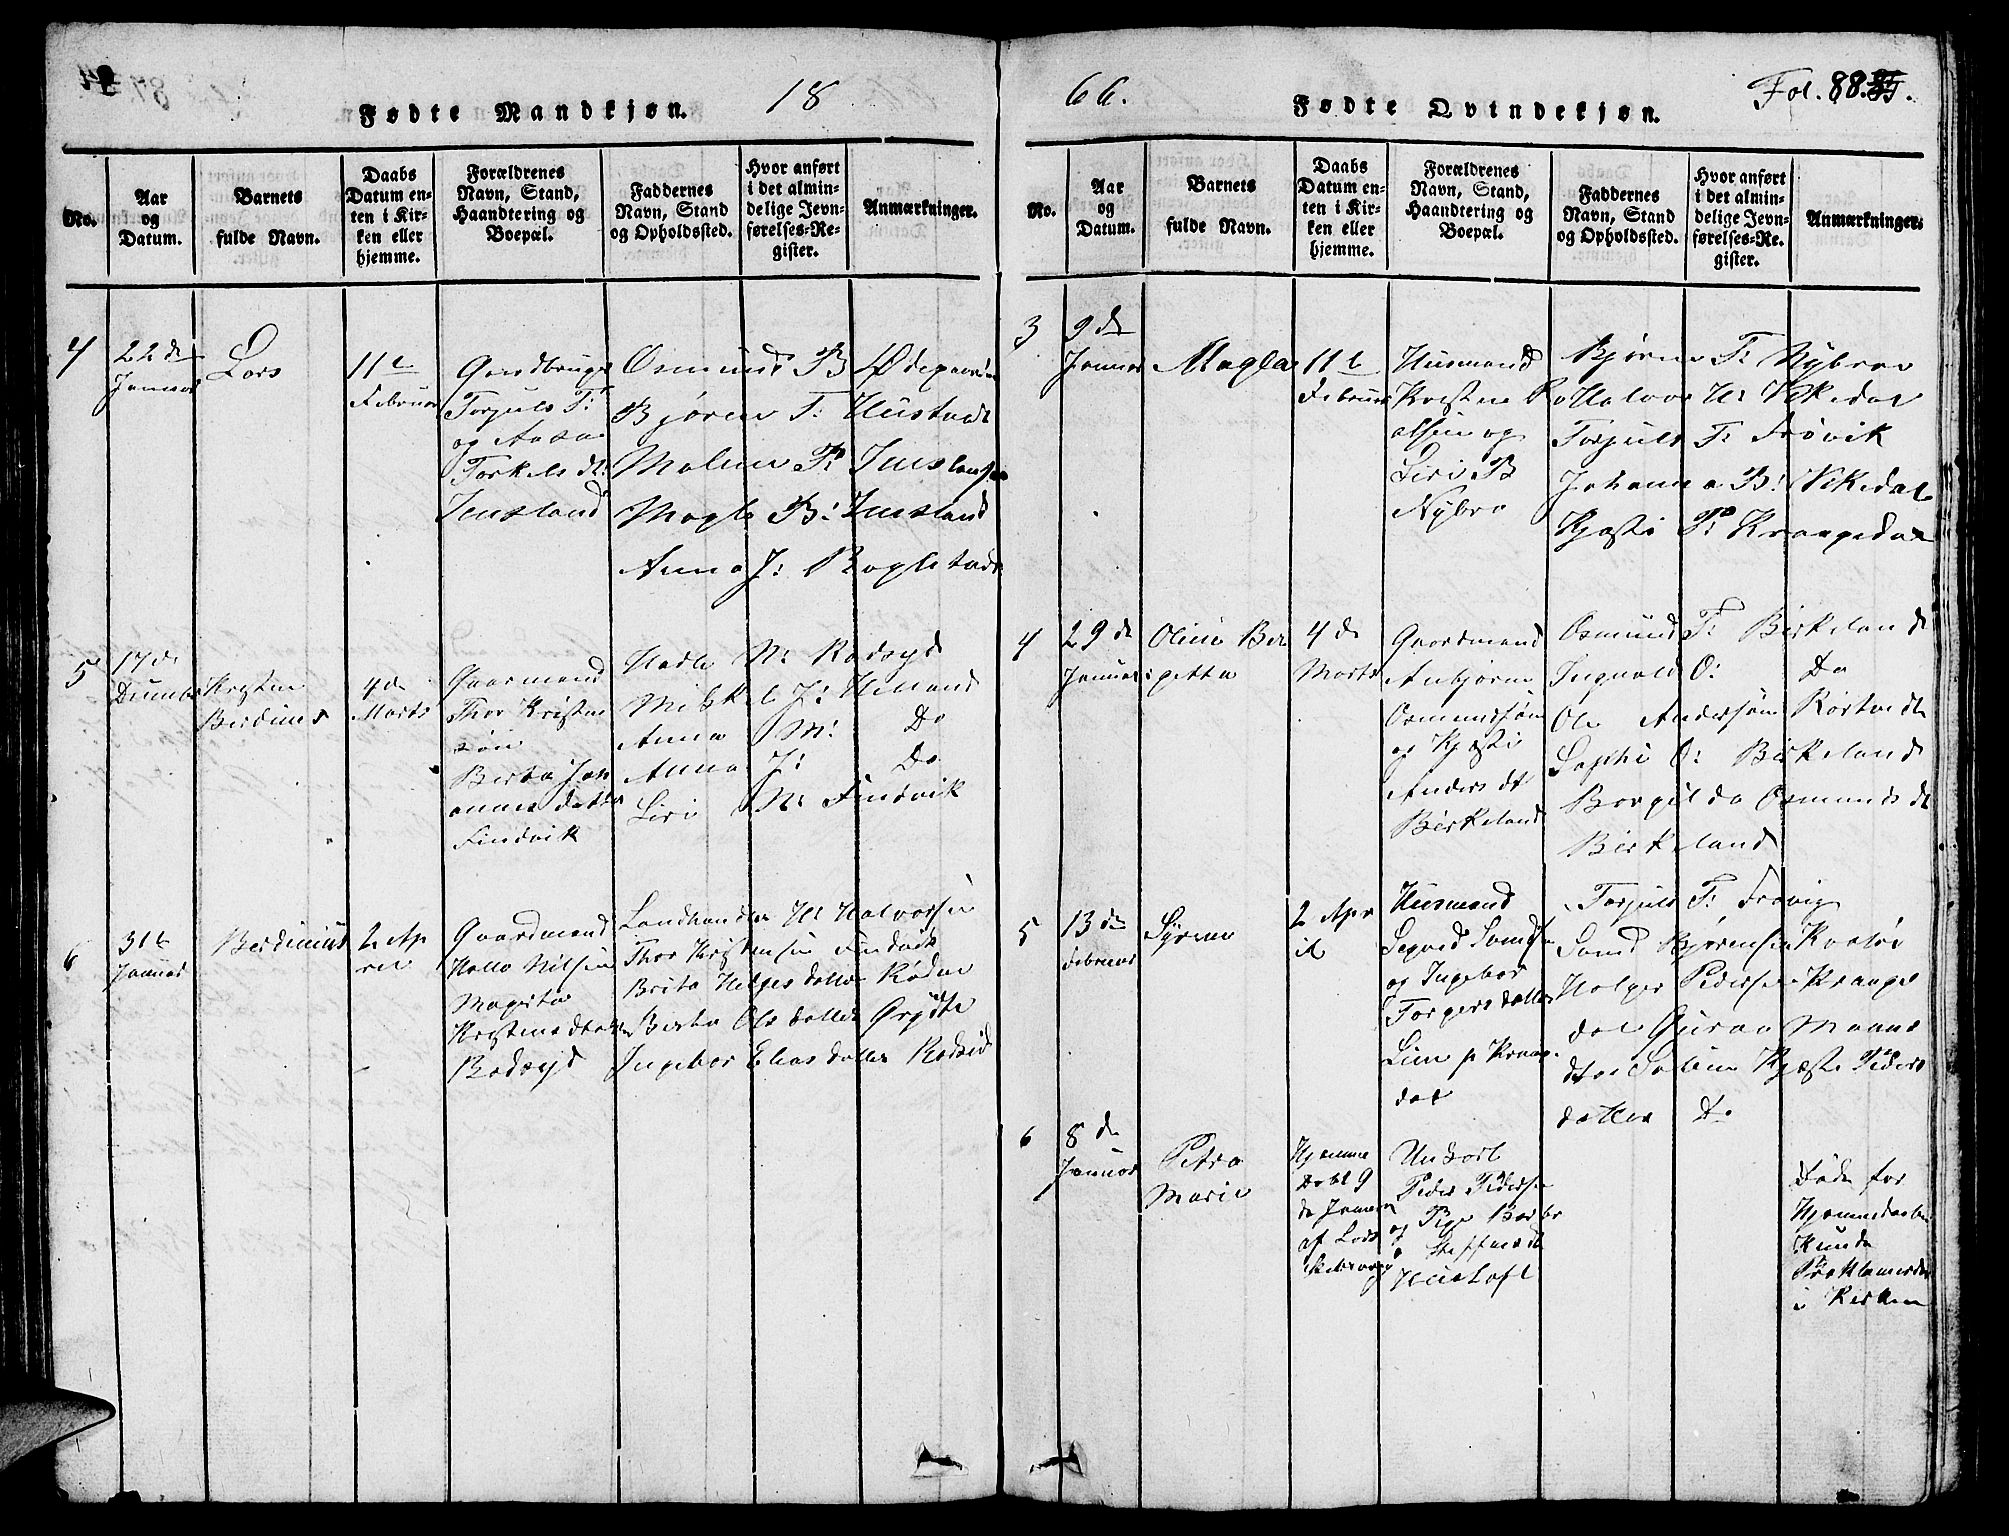 Fødte Mandkjøn.
18
No.
Aar
og
Datum.
Barnets
fulde Navn.
Daabs
Datum en-
ten i Kir-
ken eller
hjemme.
Forældrenes
Navn, Stand,
Haandtering og
Boepæl.
Faddernes
Navn, Stand
og Opholdssted.
Hvor anført
i det almin-
delige Jevn-
førelses-Re-
gister.
Anmærkninger.
4
22 de
Januar
Lars
11te
Februar
Gaardbruger
Torjuls T:
og Aasa
Torkels dt:
Jensland
Osmund B Ødegaard
Bjøren T: Hustvedt
Malene T:
Magla B: Jensland
Anna J: Roglstad
5
17 de
Kristen
Berdines
4 de
Marts
Gaarmand
Thor Kristen
søn
Berta Joh
annes datter
Findvik
Hadle N: Rodsyd
Mikkel J: Helland
Anna M: Do
Anna J: Do
Siri N: Findvik
6
31te
Januar
Berdinius
2 Ap
ril
Gaardmand
Halle Nilsen
Magreta
Kristensdatter
Rodsyd
Landhandler H: Halvorsen
Thor Kristensen Findvik
Brita Helges datter Rødne
Berta Ols datter Grydte
Ingebor Elias datter Rodsid
66.
Fødte Qvindekjøn.
Fol. 88.
No.
Aar
og
Datum.
Barnets
fulde Navn.
Daabs
Datum en-
ten i Kir-
ken eller
hjemme.
Forældrenes
Navn, Stand,
Haandtering og
Boepæl.
Faddernes
Navn, Stand
og Opholdssted.
Hvor anført
i det almin-
delige Jevn-
førelses-Re-
gister.
Anmærkninger.
3
9 de
Januar
Magla
11te
Februar
Husmand
Kristen
og
Siri B
Nybro
Bjørne T: Nybro
Halvor H: Vikedal
Torjuls T: Frøvik
Johanna B: Vikedal
Kjøsti P: Kraagedal
4
29 de
Januar
Oline Ber
gitta
4 de
Marts
Gaardmand
Anbjørn
Osmundsøn
og Kjøsti
Anders dt
Birkeland
Osmund T: Birkeland
Ingvald O: Do
Ole Andersøn Rørtvedt
Sophi O: Birkeland
Borgilda Osmunds dt
Birkeland
5
13 de
Februar
Syrene
2 Apr
il
Husmand
Segvid Samdsen
og Ingebor
Torgersdatter
Lien p Kraage
dal
Torjuls T: Frøvig
Samd Bjørensen
Holger Pedersen Kraage
dal Guraa
Kjøste Peders
datter Do
6
8 de
Januar
Petra
Marie
Hjemme
Døbt 9
de Januar
af Lars
Ungkarl
Peder Pedersen
og Pige Barbro
Steffens dt
Hustoft
Døde før
Hjemmedaaben
Kunde
Proklameres
i Kirken